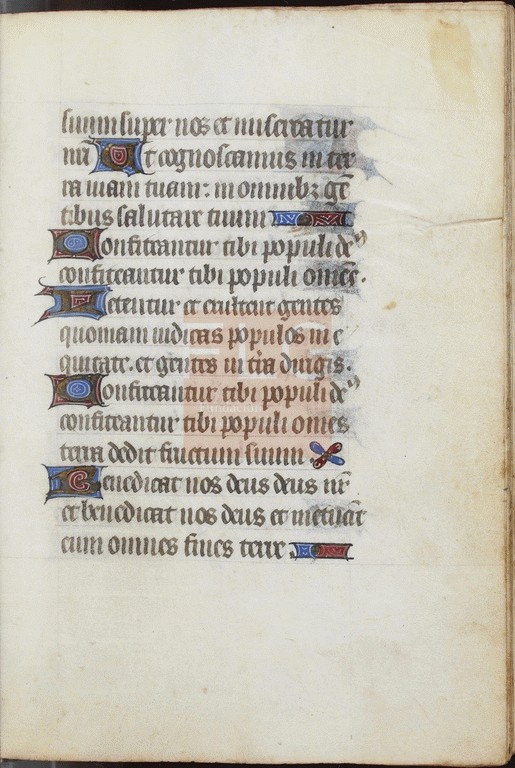 suum super nos et misereatur
nr̄i Ut cognoscamus in ter
ra uiam tuam: in omnibꝫ gē
tibus salutare tuum
Confiteantur tibi populi deꝰ
confiteantur tibi populi om̄es.
Letentur et exultent gentes
quoniam iudicas populos in e
quitate. et gentes in t̄ra dirigis.
Confiteantur tibi populi deꝰ
confiteantur tibi populi om̄es
terra dedit fructum suum
Benedicat nos deus deus nr̄
et benedicat nos deus et metuāt
eum omnes fines terre